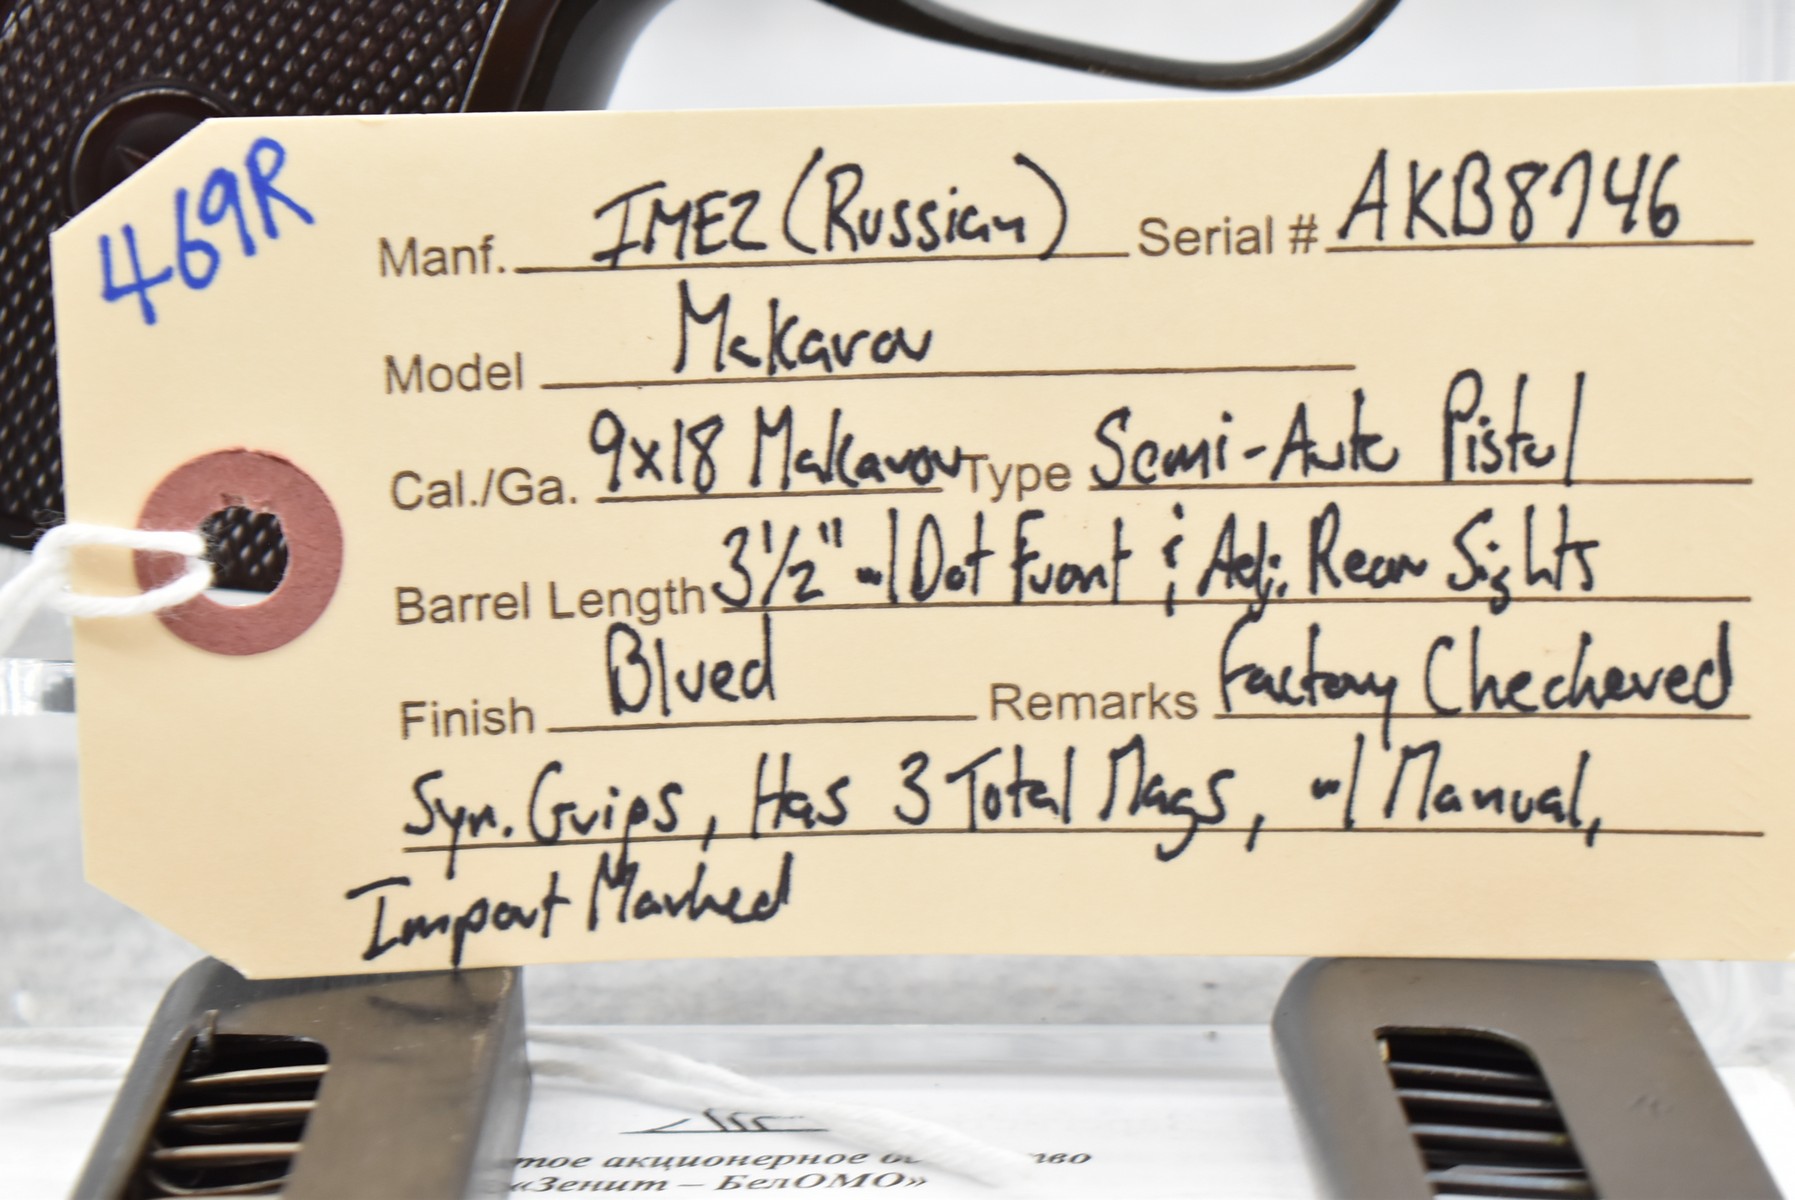 469R
Manf. IMEZ (Russian) Serial # AKB8746
Model Makarov
Cal./Ga. 9x18 Makarov Type Semi-Auto Pistol
Barrel Length 3 1/2" w/ Dot Front & Adj. Rear Sights
Finish Blued Remarks Factory Checkered
Syn. Grips, Has 3 Total Mags, w/ Manual,
Import Marked
тое акционерное
«Зенит – БелОМО»